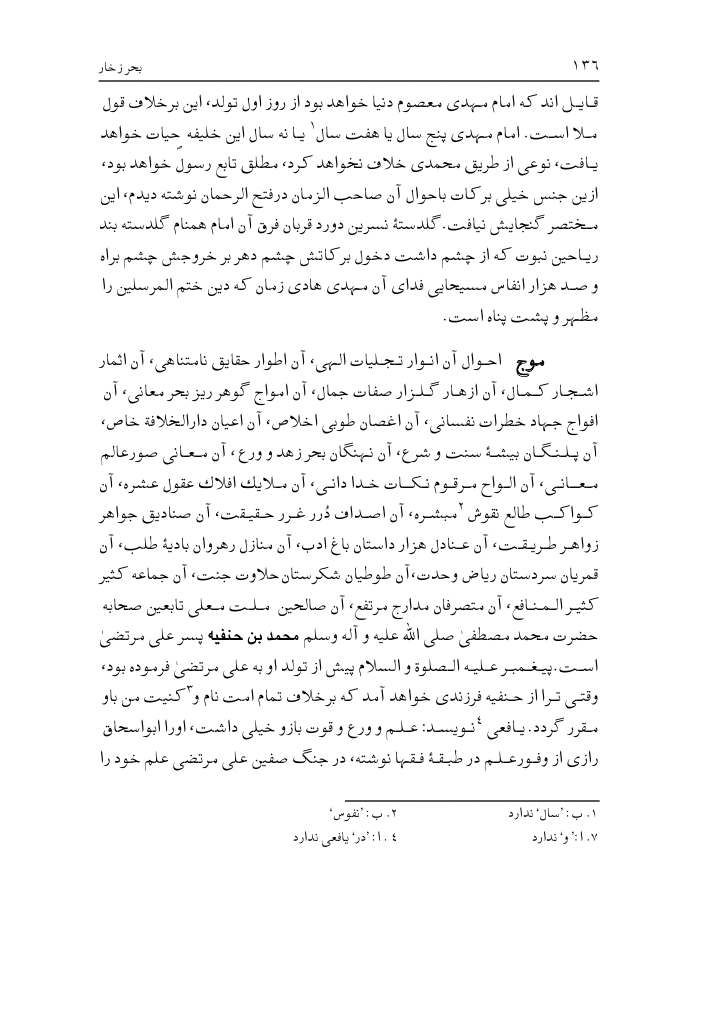 ۱۳٦
بحر زخار
قایل اند که امام مهدی معصوم دنیا خواهد بود از روز اول تولد، این برخلاف قول
ملا است. امام مهدی پنج سال یا هفت سال۱ یا نه سال این خلیفه حیات خواهد
یافت، نوعی از طریق محمدی خلاف نخواهد کرد، مطلق تابع رسول خواهد بود،
ازین جنس خیلی برکات باحوال آن صاحب الزمان درفتح الرحمان نوشته دیدم، این
مختصر گنجایش نیافت. گلدستۀ نسرین دورد قربان فرق آن امام همنام گلدسته بند
ریاحین نبوت که از چشم داشت دخول برکاتش چشم دهر بر خروجش چشم براه
و صد هزار انفاس مسیحایی فدای آن مهدی هادی زمان که دین ختم المرسلین را
مظهر و پشت پناه است.
موج احوال آن انوار تجلیات الهی، آن اطوار حقایق نامتناهی، آن اثمار
اشجار کمال، آن ازهار گلزار صفات جمال، آن امواج گوهر ریز بحر معانی، آن
افواج جهاد خطرات نفسانی، آن اغصان طوبی اخلاص، آن اعیان دارالخلافة خاص،
آن پلنگان بیشۀ سنت و شرع، آن نهنگان بحر زهد و ورع ، آن معانی صورعالم
معانی، آن الواح مرقوم نکات خدا دانی، آن ملایك افلاك عقول عشره، آن
کواکب طالع نقوش۲ مبشره، آن اصداف دُرر غرر حقیقت، آن صنادیق جواهر
زواهر طریقت، آن عنادل هزار داستان باغ ادب، آن منازل رهروان بادیۀ طلب، آن
قمریان سردستان ریاض وحدت،آن طوطیان شکرستان حلاوت جنت، آن جماعه کثیر
کثیر المنافع، آن متصرفان مدارج مرتفع، آن صالحین ملت معلی تابعین صحابه
حضرت محمد مصطفیٰ صلی الله علیه و آله وسلم محمد بن حنفیه پسر علی مرتضیٰ
است. پیغمبر علیه الصلوة و السلام پیش از تولد او به علی مرتضیٰ فرموده بود،
وقتی ترا از حنفیه فرزندی خواهد آمد که برخلاف تمام امت نام و۳ کنیت من باو
مقرر گردد. یافعی ٤ نویسد: علم و ورع و قوت بازو خیلی داشت، اورا ابواسحاق
رازی از وفورعلم در طبقۀ فقها نوشته، در جنگ صفین علی مرتضی علم خود را
۱. ب : ’سال‘ ندارد
۲. ب : ’نفوس‘
۷. ا : ’و‘ ندارد
٤ . ا : ’در‘ یافعی ندارد